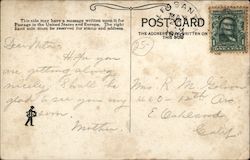 This side may have a message written upon it for
Postage in the United States and Europe. The right
hand side must be reserved for stamp and address.
POST CARD
THE ADDRESS TO BE WRITTEN ON
THIS SIDE
25-
Hope you
are getting along
nicely
glad to see you
soon.
Mother.
Mrs. R. M.
600 - 12th Ave
E. Oakland
Calif